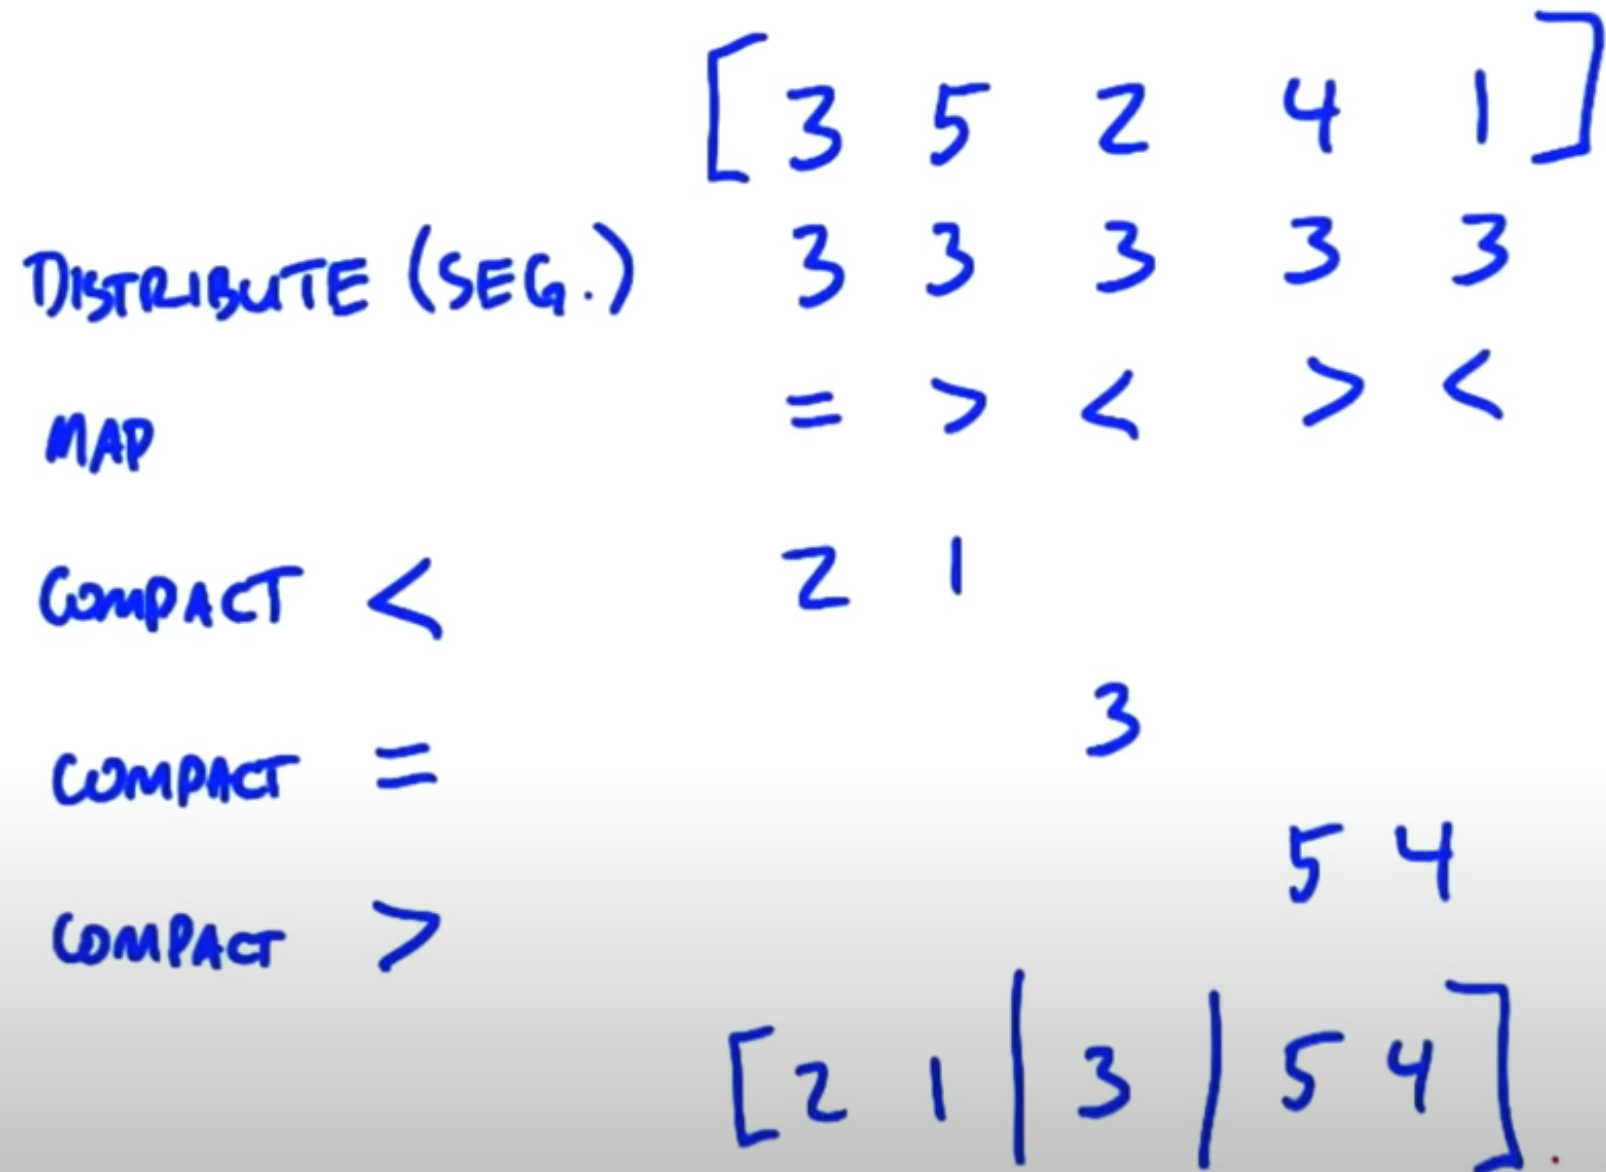 [ 3 5 2 4 1 ]
DISTRIBUTE (SEG.) 3 3 3 3 3
MAP = > < > <
COMPACT < 2 1
COMPACT = 3
COMPACT > 5 4
[ 2 1 | 3 | 5 4 ]